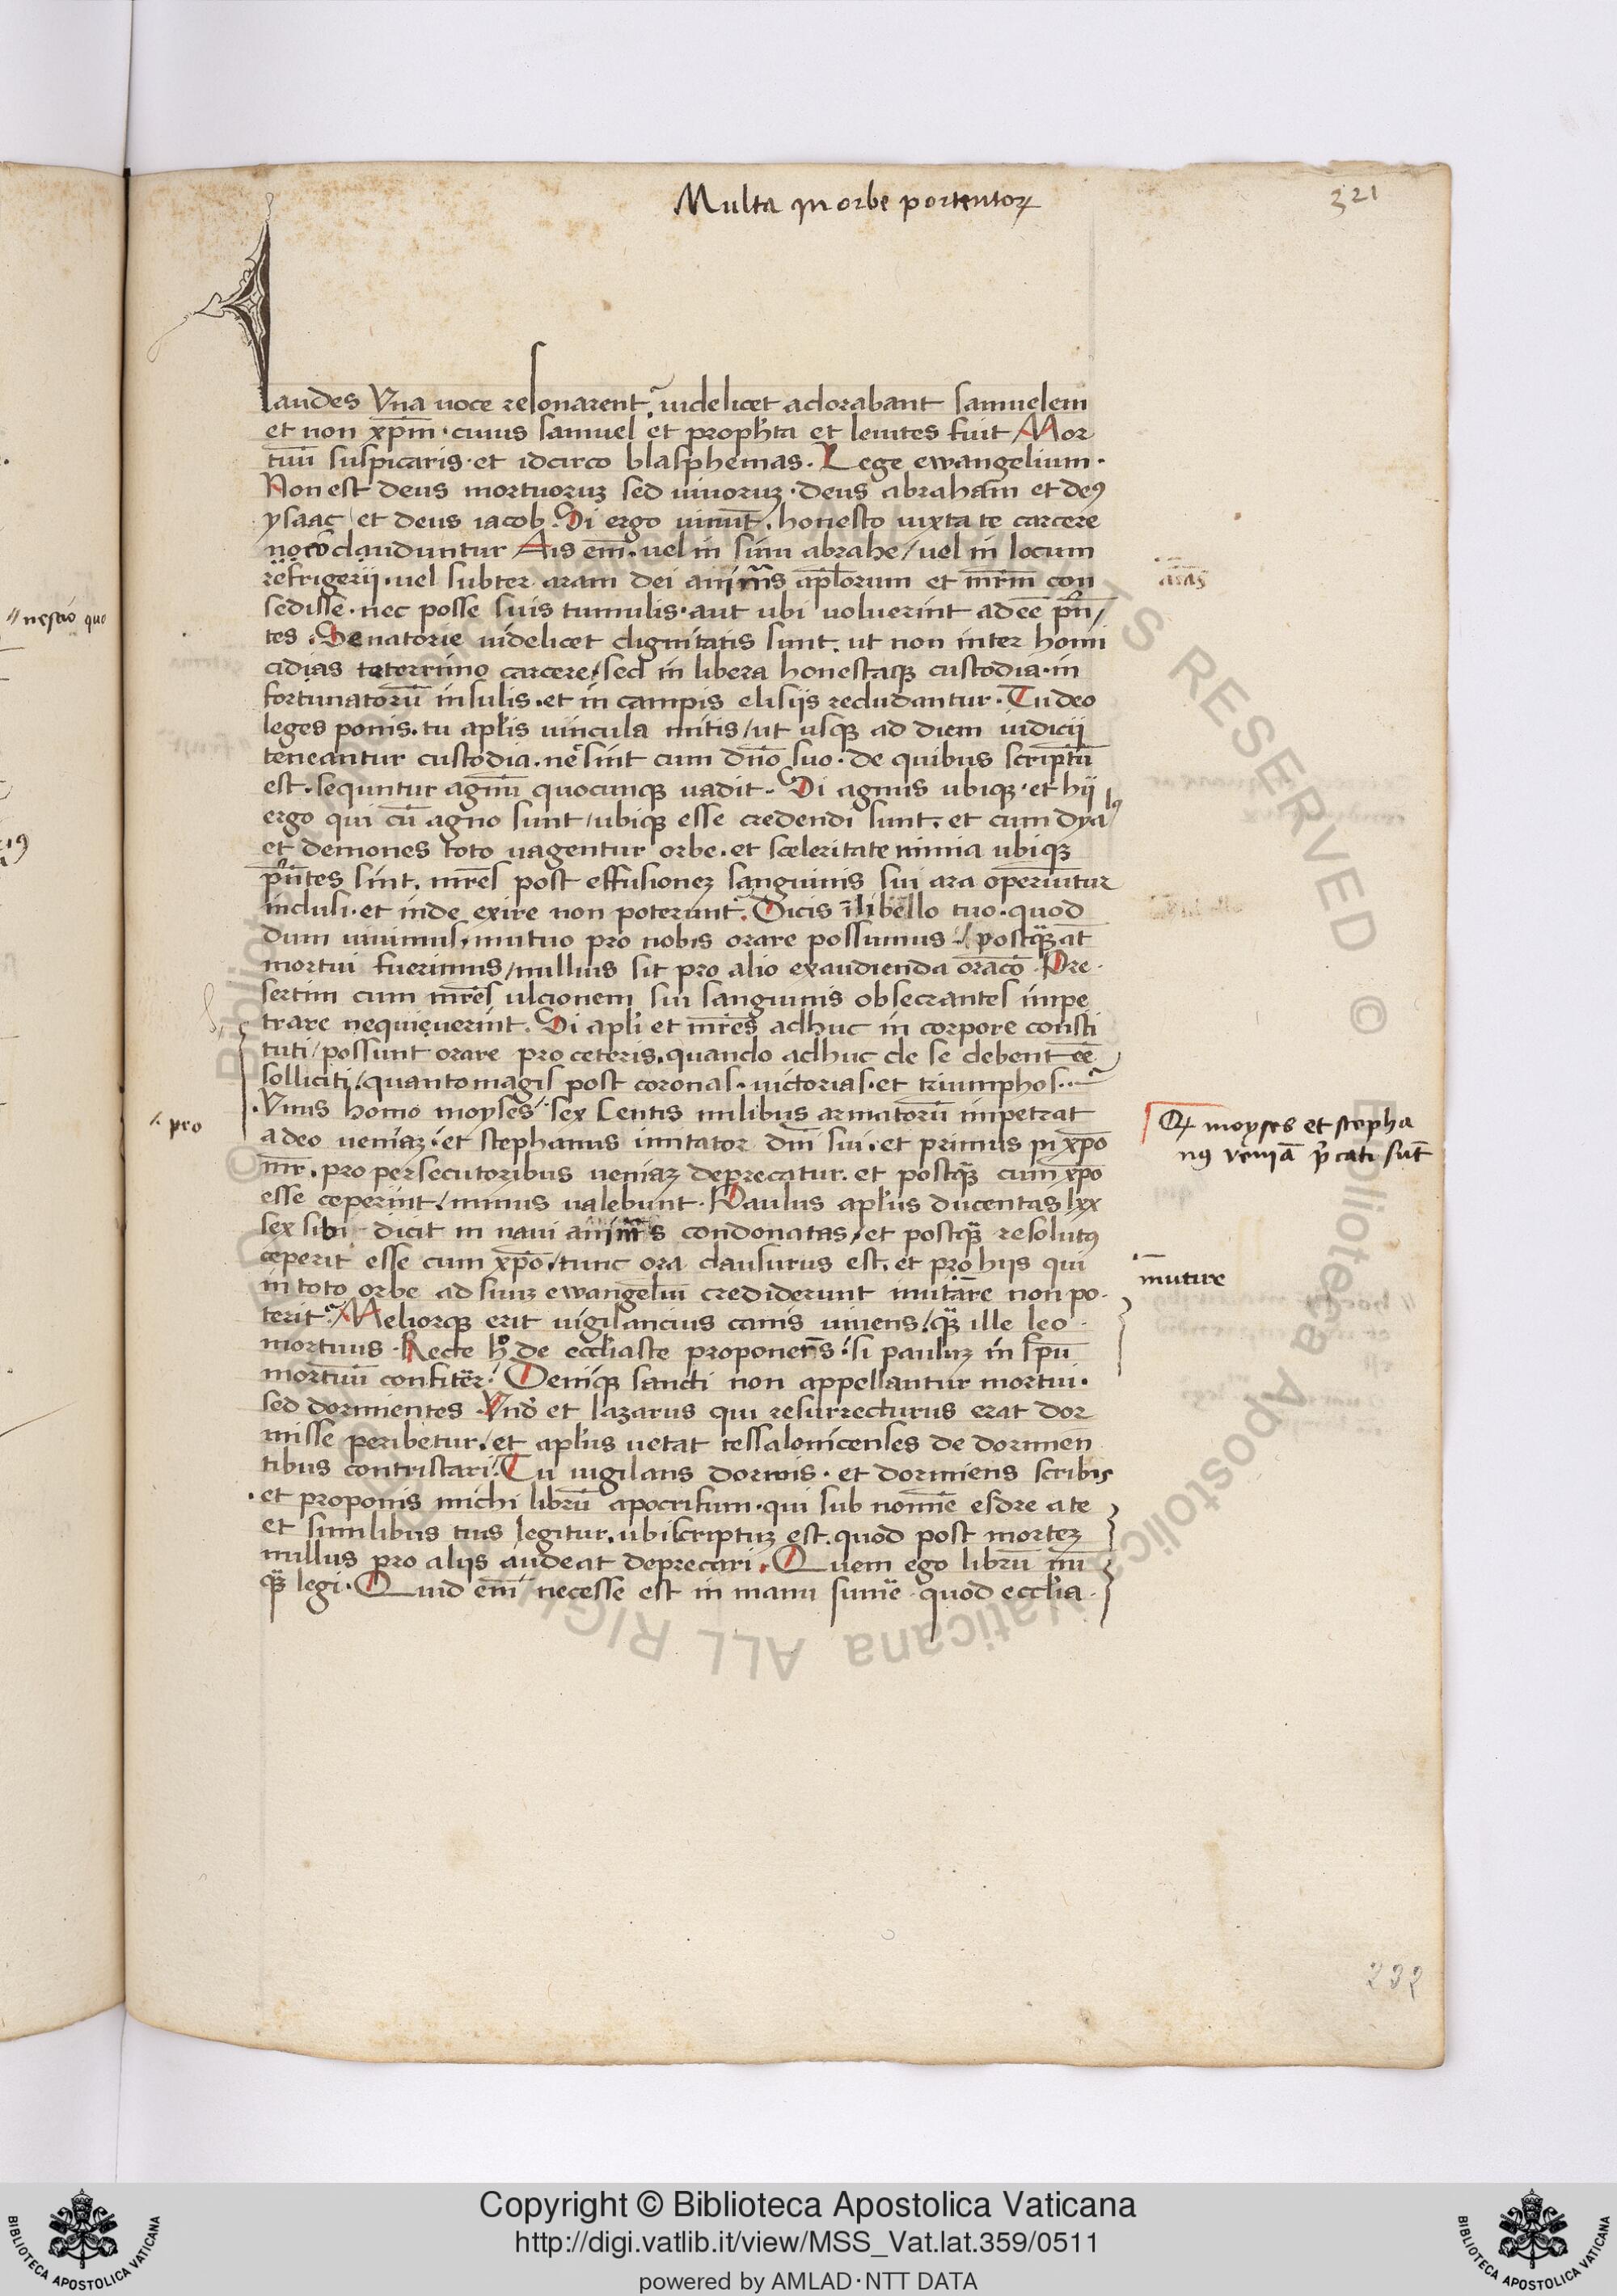 Multa in orbe portentoꝝ
321
laudes Vna uoce resonarent᷑. uidelicet adorabant samuelem
et non xp̄m · cuius samuel et proph̄ta et leuites fuit Mor
tuū suspicaris · et idcirco blasphemas. Lege ewangelium ·
Non est deus mortuoruʒ sed uiuoruʒ · deus abraham et deꝰ
ysaac / et deus iacob. Si ergo uiuūt. honesto iuxta te carcere
nō cōclauduntur Ais em̄. uel in sinu abrahe / uel in locum
refrigerii · uel subter aram dei animas ap̄lorum et mr̄m con
sedisse · nec posse suis tumulis · aut ubi uoluerint adeē p̄n /
tes. Senatorie uidelicet dignitatis sunt. ut non inter homi
cidias teterrimo carcere / sed in libera honestaqꝫ custodia · in
fortunatorū insulis · et in campis elisiis recludantur. Tu deo
leges ponis. tu apl̄is uincula mitis / ut usqꝫ ad diem iudicii
teneantur custodia. ne sint cum dn̄o suo · de quibus scriptū
est · sequntur agnū quocunqꝫ uadit. Si agnus ubiqꝫ · et hii
ergo qui cū agno sunt / ubiqꝫ esse credendi sunt. et cum dyalꝰ
et demones toto uagentur orbe. et sceleritate nimia ubiqꝫ
p̄ntes sint. mr̄es post effusioneʒ sanguinis sui ara operiuntur
inclusi · et inde exire non poterunt᷑. Dicis ī libello tuo · quod
dum uiuimus. mutuo pro nobis orare possumus / postqꝫ at̄
mortui fuerimus / nullius sit pro alio exaudienda orac̄o Pre ·
sertim cum mr̄es ulcionem sui sanguinis obsecrantes impe
trare nequieuerint. Si apl̄i et mr̄es adhuc in corpore consti
tuti / possunt orare pro ceteris. quando adhuc de se debent eē
solliciti / quantomagis post coronas · uictorias · et triumphos ··
· Vnus homo moyses sex Centis milibus armatorū impetrat
a deo ueniaʒ · et stephanus imitator dn̄i sui. et primus in xp̄o
mr̄. pro persecutoribus ueniaʒ deprecatur. et postqꝫ cum xp̄o
esse ceperint / minus ualebunt · Paulus apl̄us ducentas lxx
sex sibi dicit in naui animas condonatas / et postqꝫ resolutꝰ
ceperit esse cum xp̄o / tunc ora clausurus est. et pro hiis qui
in toto orbe ad suuʒ ewangeliū crediderunt mutāre non po ·
terit᷑ / Meliorqꝫ erit uigilancius canis uiuens / qꝫ ille leo ·
mortuus · Recte h° de eccl̄iaste proponer̄s · si pauluʒ in sp̄u
mortuū confiter̄. Deniqꝫ sancti non appellantur mortui ·
sed dormientes Vnd̄ et lazarus qui resurrecturus erat dor
misse peribetur / et apl̄us uetat tessalonicenses de dormien
tibus contristari. Tu uigilans dormis · et dormiens scribis
· et proponis michi librū apocrifum · qui sub nomīe esdre a te
et similibus tuis legitur. ubi scriptuʒ est. quod post morteʒ
nullus pro aliis audeat deprecari. Quem ego librū nū
qꝫ legi · Quid em̄ necesse est in manu sumē quod eccl̄ia ·
// nescio quo
aras
·/· pro
Qꝫ moyses et stepha
nꝰ veniā p̄cati sūt
mutire
232
Copyright © Biblioteca Apostolica Vaticana
http://digi.vatlib.it/view/MSS_Vat.lat.359/0511
powered by AMLAD·NTT DATA
BIBLIOTECA APOSTOLICA VATICANA
BIBLIOTECA APOSTOLICA VATICANA